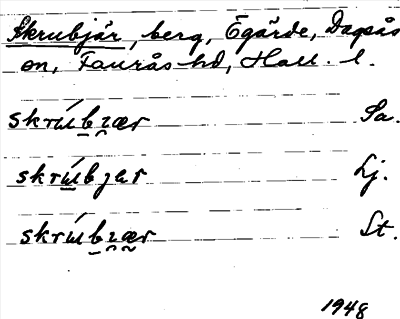 Skrubjär, berg, Egärde, Dagsås
sn, Faurås hd, Hall. l.
skrúbɿær Sa.
skrúbjær Lj.
skrúbɿær St.
1948